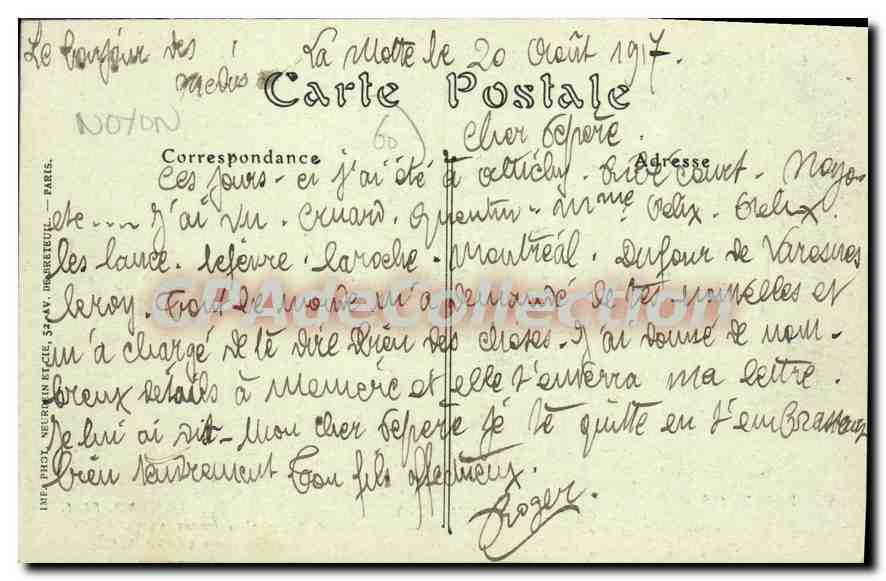 Le bonjour des
La Motte le 20 Août 1917.
Carte Postale
NOYON
60
Cher Pépère.
Correspondance
Adresse
Ces jours-ci j'ai été à Attichy. Ribécourt. Noyon
etc.... J'ai vu. Cruard. Quentin. Mme Félix. Félix.
les Lance. Lefèvre. Laroche. Montréal. Dufour de Varesnes
Leroy. Tout le monde m'a demandé de tes nouvelles et
m'a chargé de te dire bien des choses. J'ai donné de nom-
breux détails à Mémère et elle t'enverra ma lettre.
Je lui ai dit. Mon cher Pépère je te quitte en t'embrassant
bien tendrement Ton fils affectueux.
Roger.
IMP. PHOT. NEURDEIN ET CIE, 52, AV. DE BRETEUIL. — PARIS.
CPAdeCollection